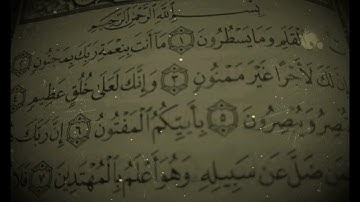 بِسْمِ اللَّهِ الرَّحْمَٰنِ الرَّحِيمِ
الْقَلَمِ وَمَا يَسْطُرُونَ ١ مَا أَنتَ بِنِعْمَةِ رَبِّكَ بِمَجْنُونٍ ٢
لَكَ لَأَجْرًا غَيْرَ مَمْنُونٍ ٣ وَإِنَّكَ لَعَلَىٰ خُلُقٍ عَظِيمٍ ٤
وَيُبْصِرُونَ ٥ بِأَييِّكُمُ الْمَفْتُونُ ٦ إِنَّ رَبَّكَ
ضَلَّ عَن سَبِيلِهِ وَهُوَ أَعْلَمُ بِالْمُهْتَدِينَ ٧ فَلَا